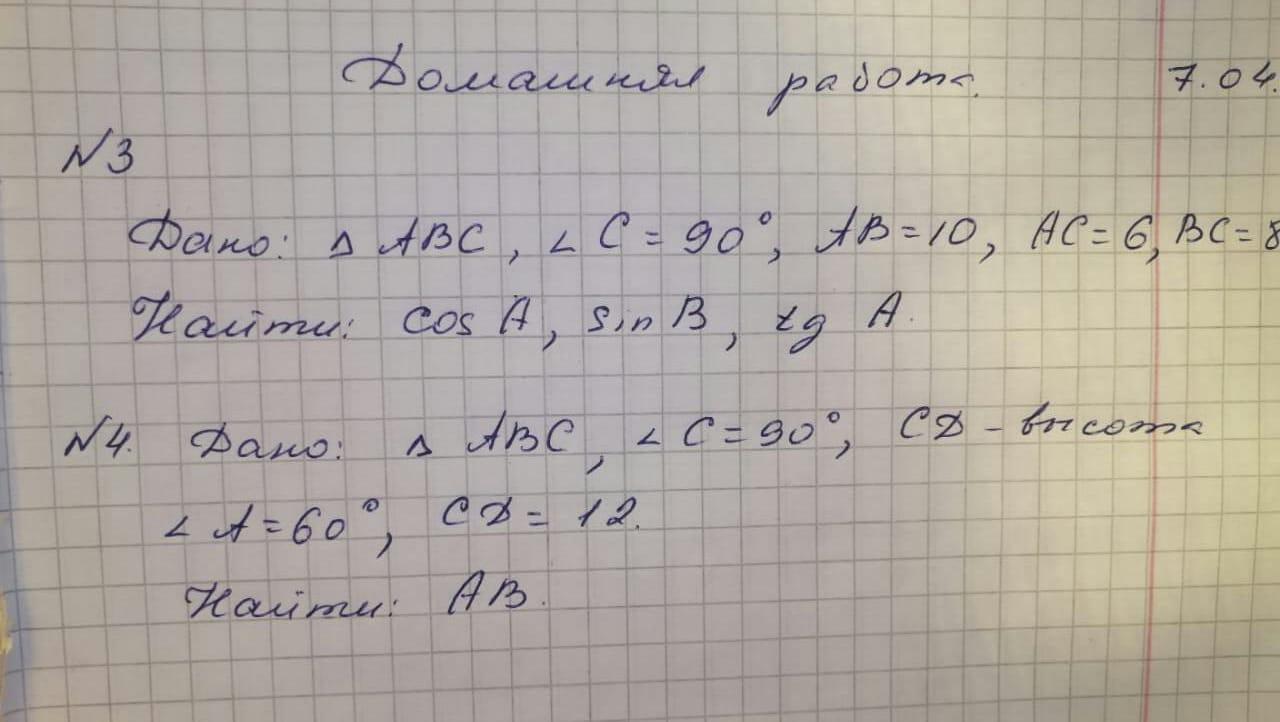 Домашняя работа. 7.04.
N3
Дано: Δ ABC, ∠ C = 90°, AB = 10, AC = 6, BC = 8
Найти: cos A, sin B, tg A.
N4. Дано: Δ ABC, ∠ C = 90°, CD - высота
∠ A = 60°, CD = 12.
Найти: AB.